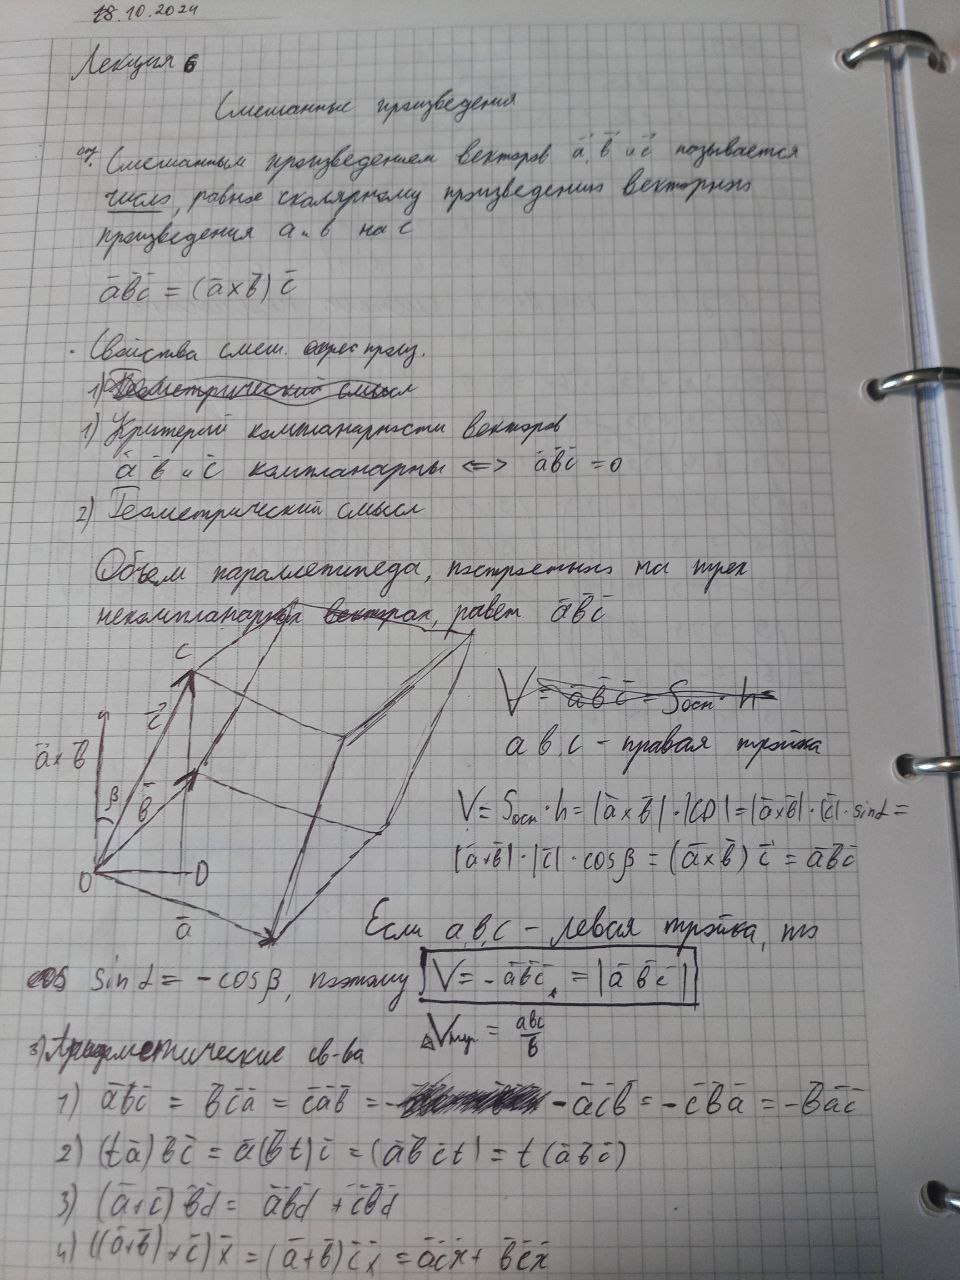 18.10.2024
Лекция 6
Смешанные произведения
опр. Смешанным произведением векторов a̅, b̅ и c̅ называется
число, равное скалярному произведению векторного
произведения a и b на c
a̅b̅c̅ = (a̅×b̅) c̅
· Свойства смеш. произ.
1) Геометрический смысл
1) Критерий компланарности векторов
a̅ b̅ и c̅ компланарны <=> a̅b̅c̅ = 0
2) Геометрический смысл
Объем параллепипеда, построенного на трех
некомпланарных векторах, равен a̅b̅c̅
V = a̅b̅c̅ = Sосн · h =
a, b, c - правая тройка
V = Sосн · h = |a̅×b̅| · |CD| = |a̅×b̅| · |c̅| · sinα =
|a̅×b̅| · |c̅| · cosβ = (a̅×b̅) c̅ = a̅b̅c̅
C
c̅
a̅×b̅
β
b̅
O
D
a̅
Если a, b, c - левая тройка, то
sinα = -cosβ, поэтому V = -a̅b̅c̅ = |a̅ b̅ c̅|
Vпир = abc/6
3) Арифметические св-ва
1) a̅b̅c̅ = b̅c̅a̅ = c̅a̅b̅ = -a̅c̅b̅ = -c̅b̅a̅ = -b̅a̅c̅
2) (ta̅)b̅c̅ = a̅(b̅t)c̅ = (a̅b̅c̅t) = t(a̅b̅c̅)
3) (a̅+c̅)b̅d̅ = a̅b̅d̅ + c̅b̅d̅
4) ((a̅+b̅)×c̅)x̅ = (a̅+b̅)c̅x̅ = a̅c̅x̅ + b̅c̅x̅